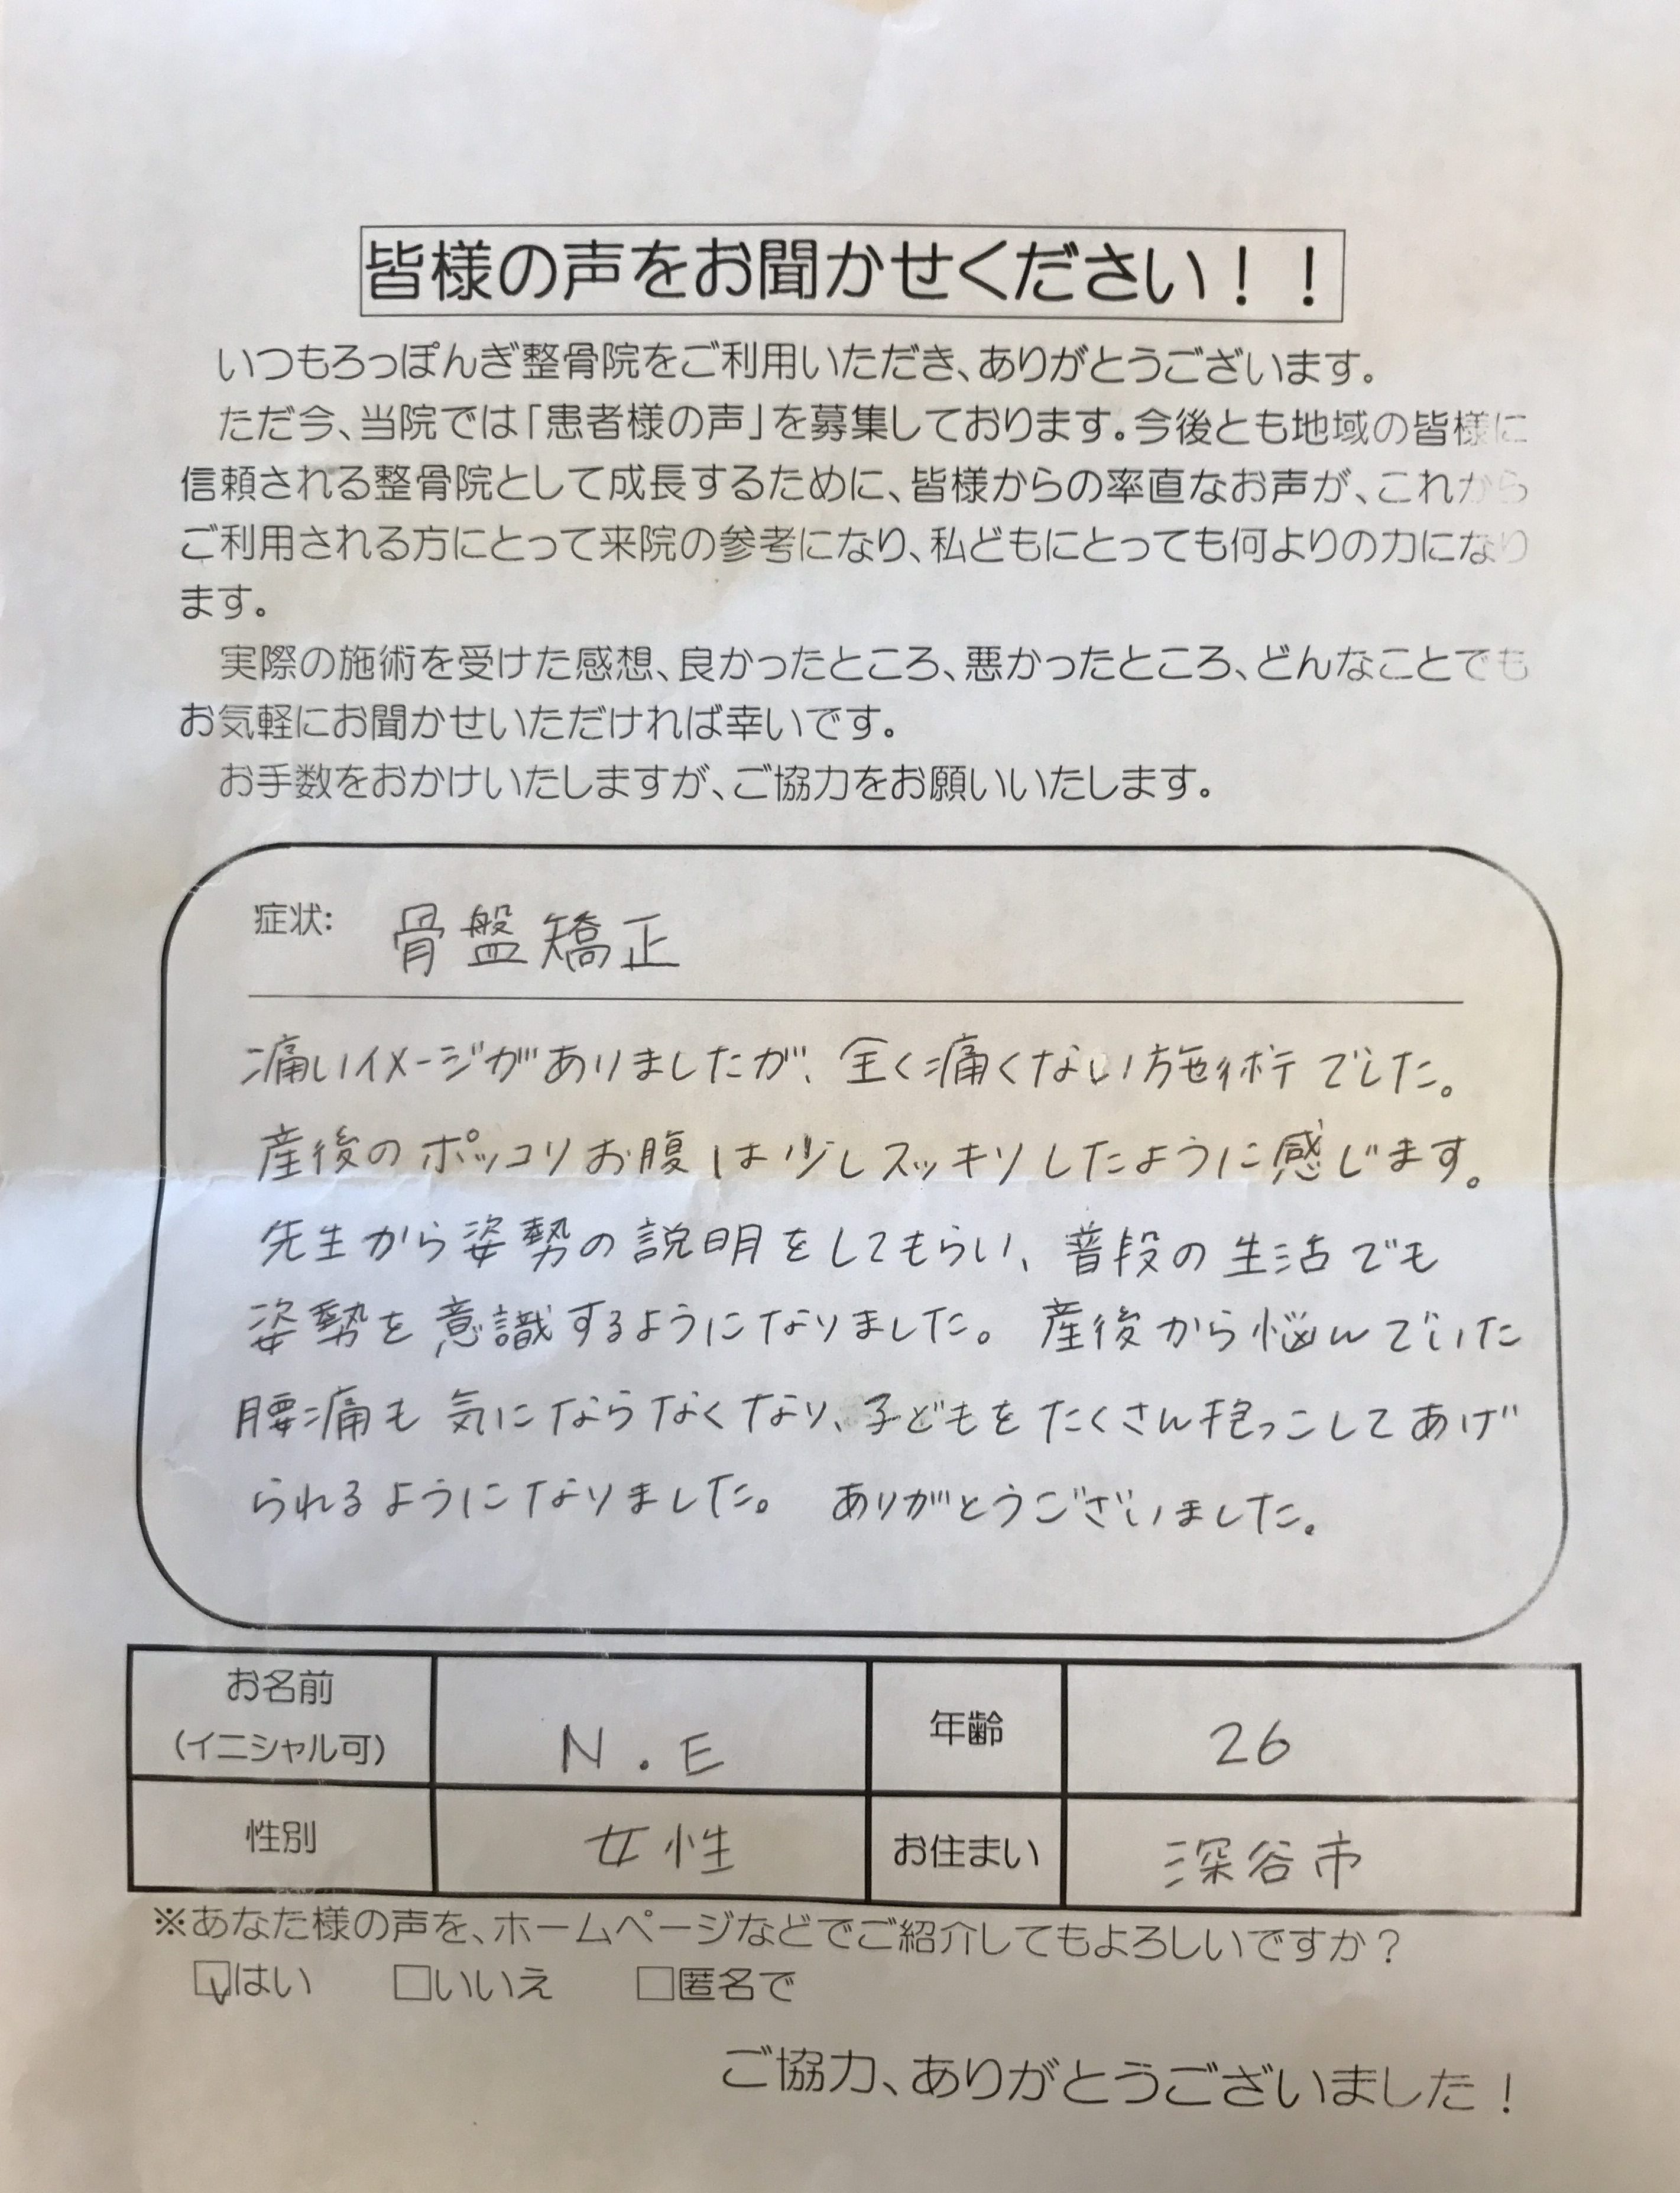 皆様の声をお聞かせください！！
いつもろっぽんぎ整骨院をご利用いただき、ありがとうございます。
ただ今、当院では「患者様の声」を募集しております。今後とも地域の皆様に
信頼される整骨院として成長するために、皆様からの率直なお声が、これから
ご利用される方にとって来院の参考になり、私どもにとっても何よりの力になり
ます。
実際の施術を受けた感想、良かったところ、悪かったところ、どんなことでも
お気軽にお聞かせいただければ幸いです。
お手数をおかけいたしますが、ご協力をお願いいたします。
症状: 骨盤矯正
痛いイメージがありましたが、全く痛くない施術でした。
産後のポッコリお腹は少しスッキリしたように感じます。
先生から姿勢の説明をしてもらい、普段の生活でも
姿勢を意識するようになりました。産後から悩んでいた
腰痛も気にならなくなり、子どもをたくさん抱っこしてあげ
られるようになりました。ありがとうございました。
お名前
(イニシャル可) N.E 年齢 26
性別 女性 お住まい 深谷市
※あなた様の声を、ホームページなどでご紹介してもよろしいですか？
☑はい □いいえ □匿名で
ご協力、ありがとうございました！